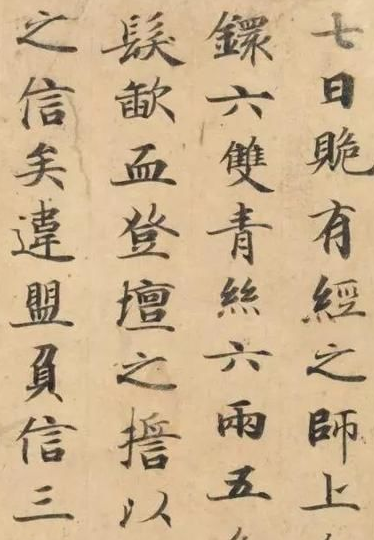 七日有經之師上
鐶六雙青絲六兩五
髮歃血登壇之擔以
之信矣違盟負信三